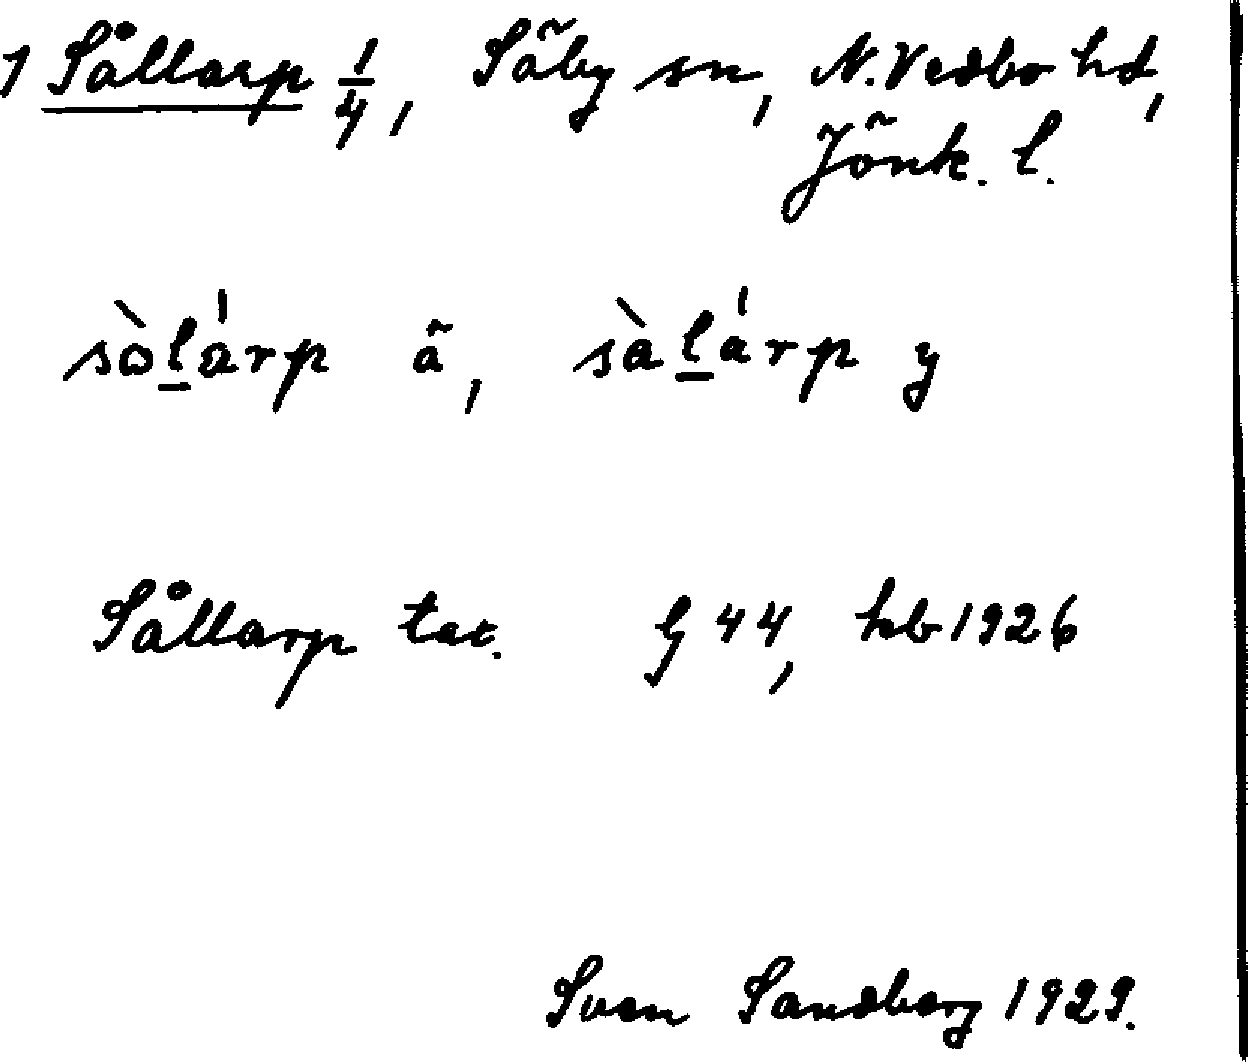 1 Sållarp 1/4, Säby sn, N. Vedbo hd,
Jönk. l.
sòlárp ä, sàlárp y
Sållarp tec. G 44, hb 1926
Sven Sandberg 1929.